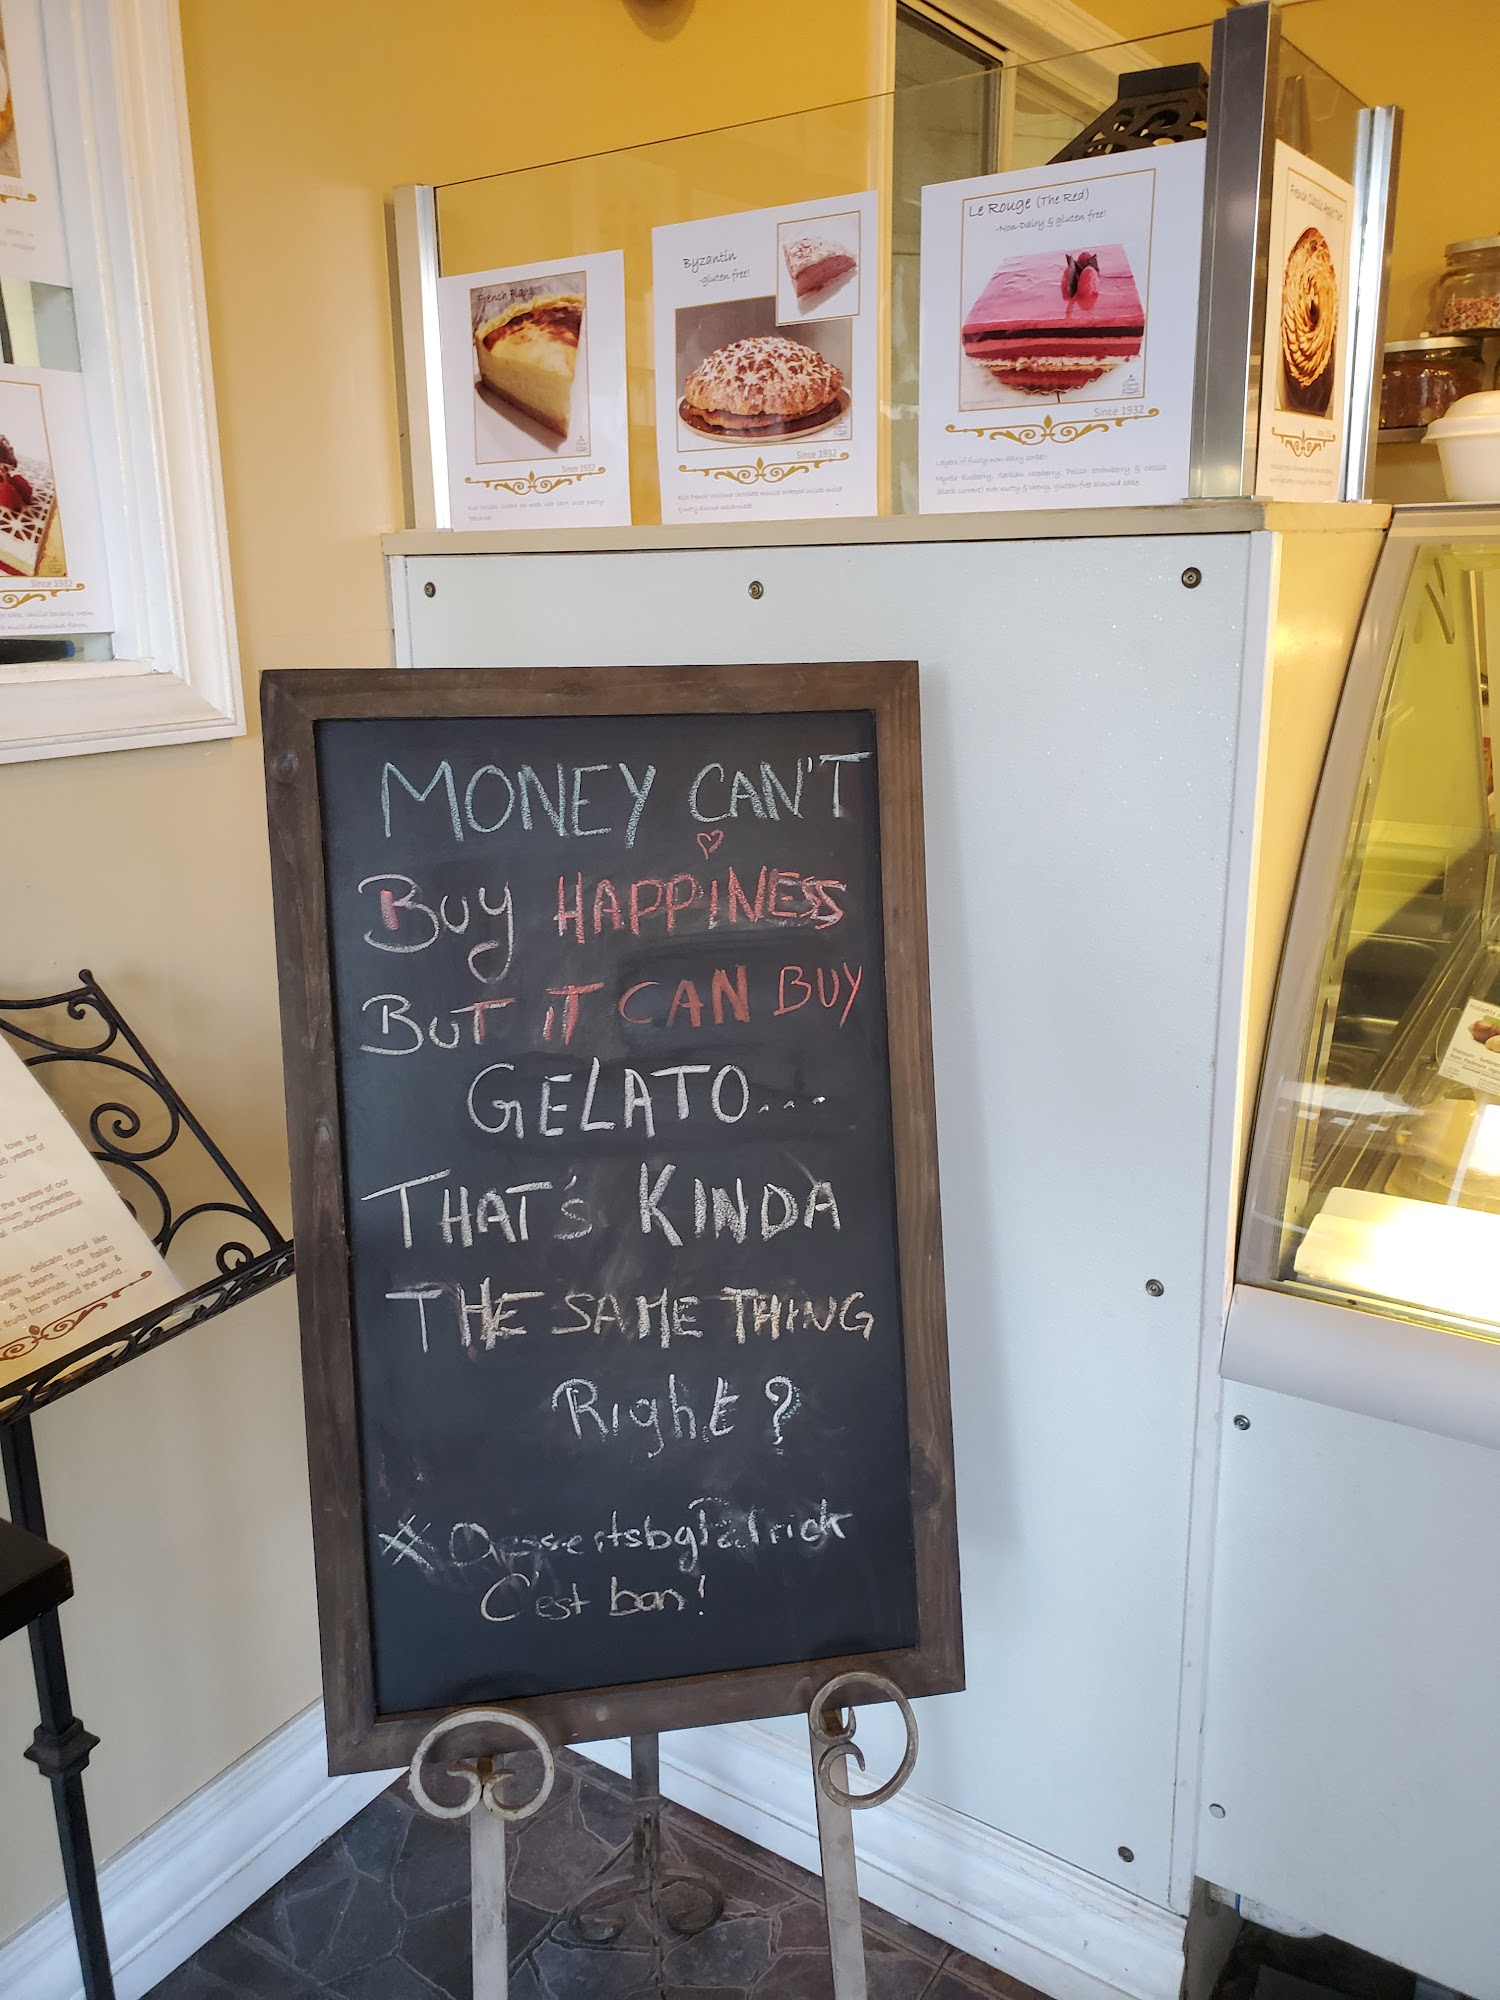 French Flan
Since 1932
Byzantin
-gluten free!
Since 1932
Rich French Valrhona chocolate mousse wrapped inside moist
& nutty almond macaroons!
Le Rouge (The Red)
-Non-Dairy & gluten free!
Since 1932
Layers of fruity non-dairy sorbet!
Myrtle Blueberry, Serbian raspberry, Polish strawberry & cassis
(black currant) over nutty & chewy, gluten-free almond cake.
French Classic Apple Tart
Since 1932
MONEY CAN'T
BUY HAPPINESS
BUT IT CAN BUY
GELATO...
THAT'S KINDA
THE SAME THING
Right?
# DessertsbyPatrick
C'est bon!
love for
35 years of
the tastes of our
premium ingredients
multi-dimensional
delicate floral like
vanilla beans, True Italian
& hazelnuts, Natural &
fruits from around the world...